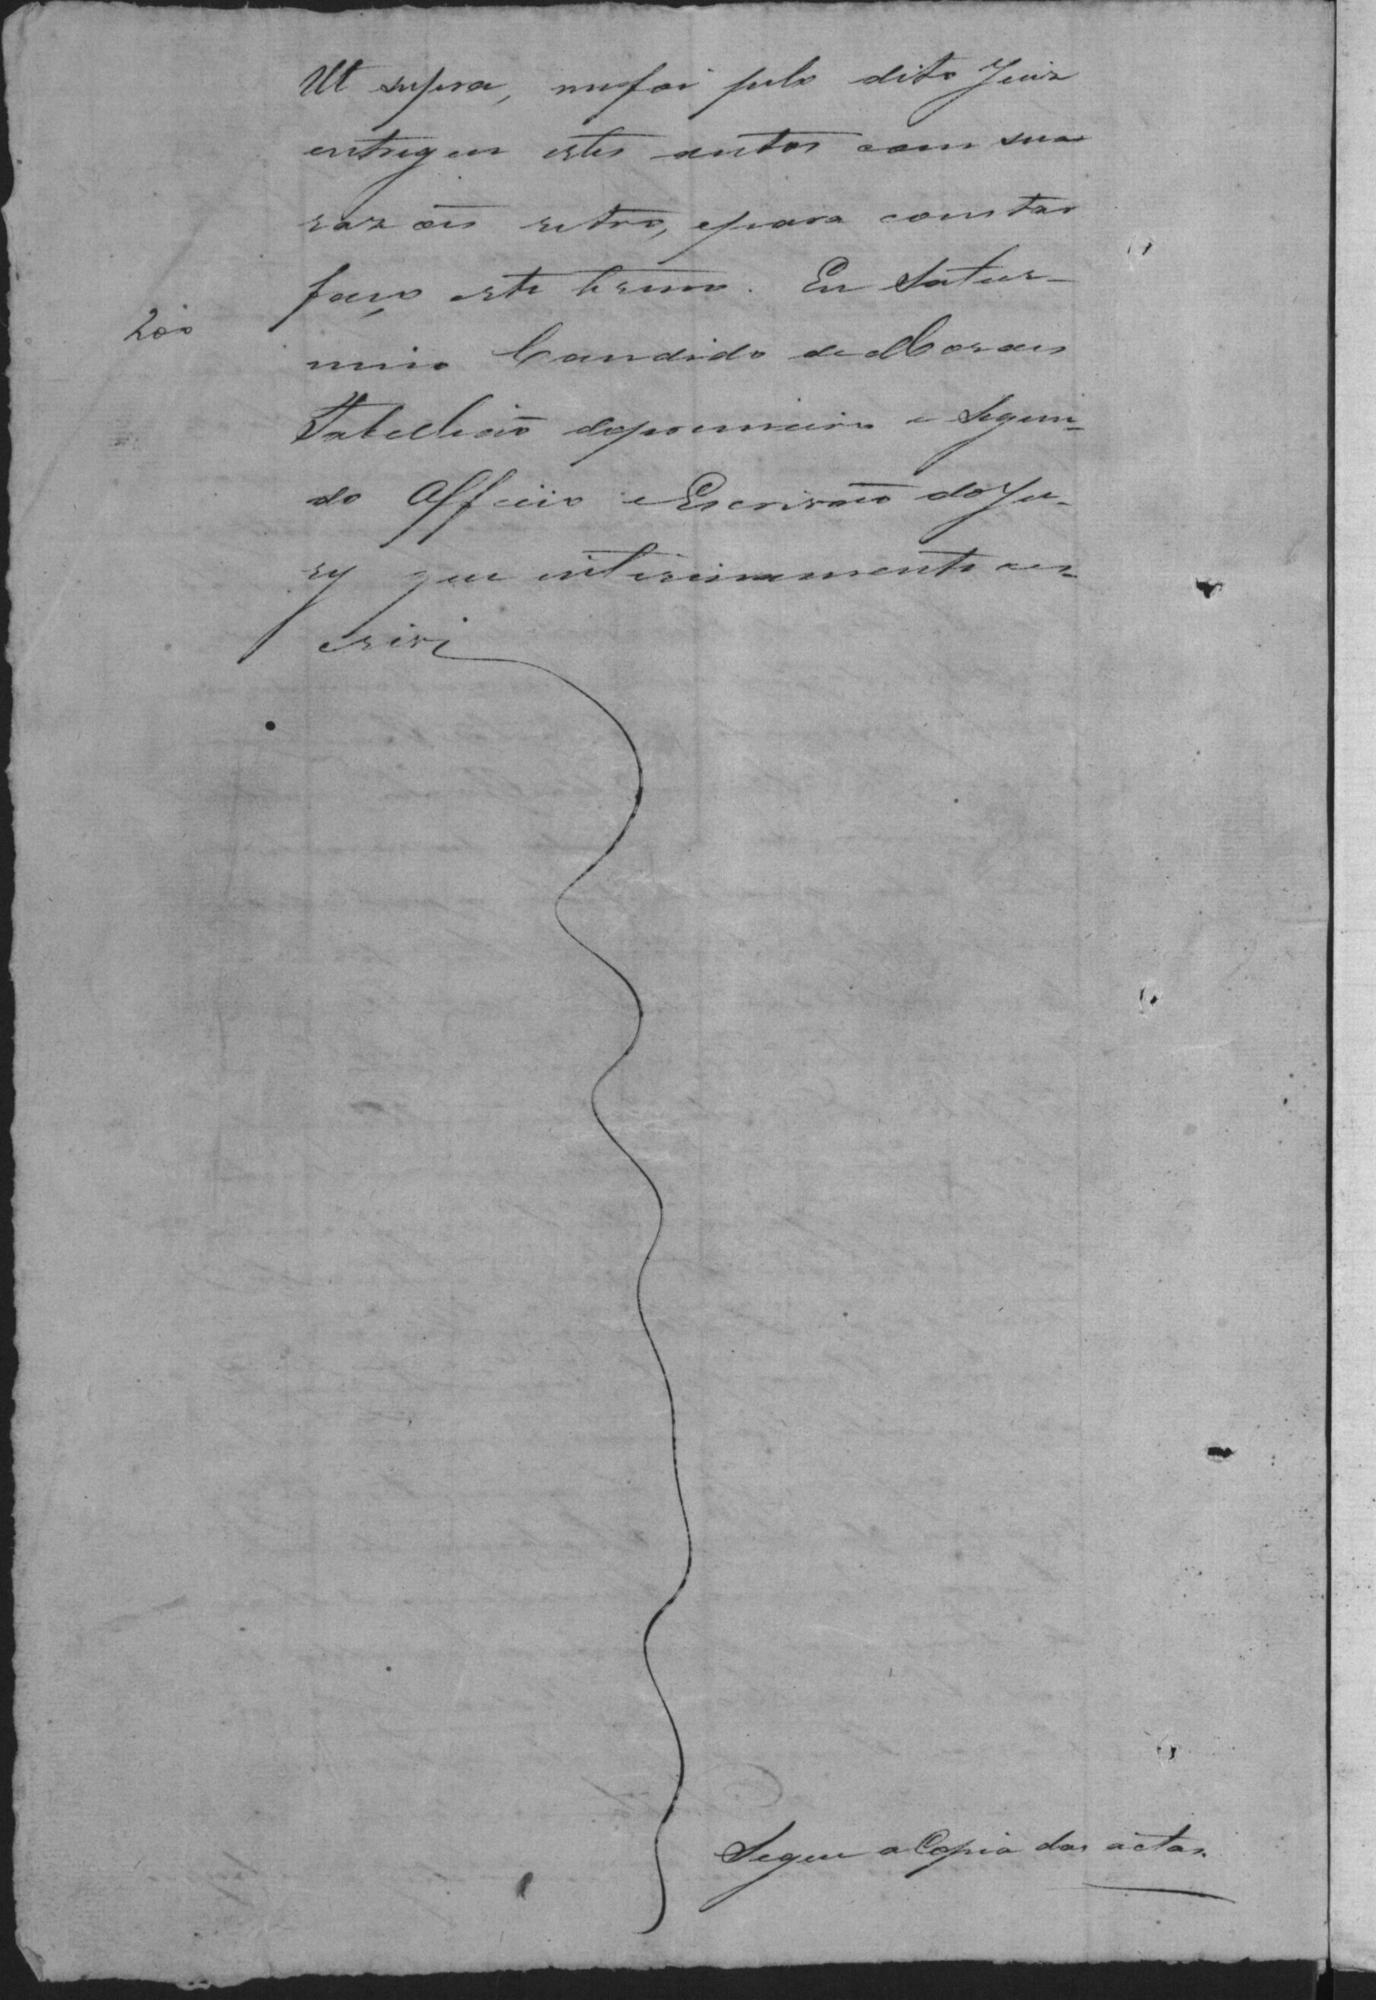 Ut supra, mefoi pelo dito Juiz
entregue estes autos com sua
razões retro, epara constar
faço este termo. Eu Satur-
200
nino Candido de Moraes
Tabellião doprimeiro e Segun-
do Officio e Escrivão doJu-
ry que interinamente es-
crivi
Segue a Copia das actas.